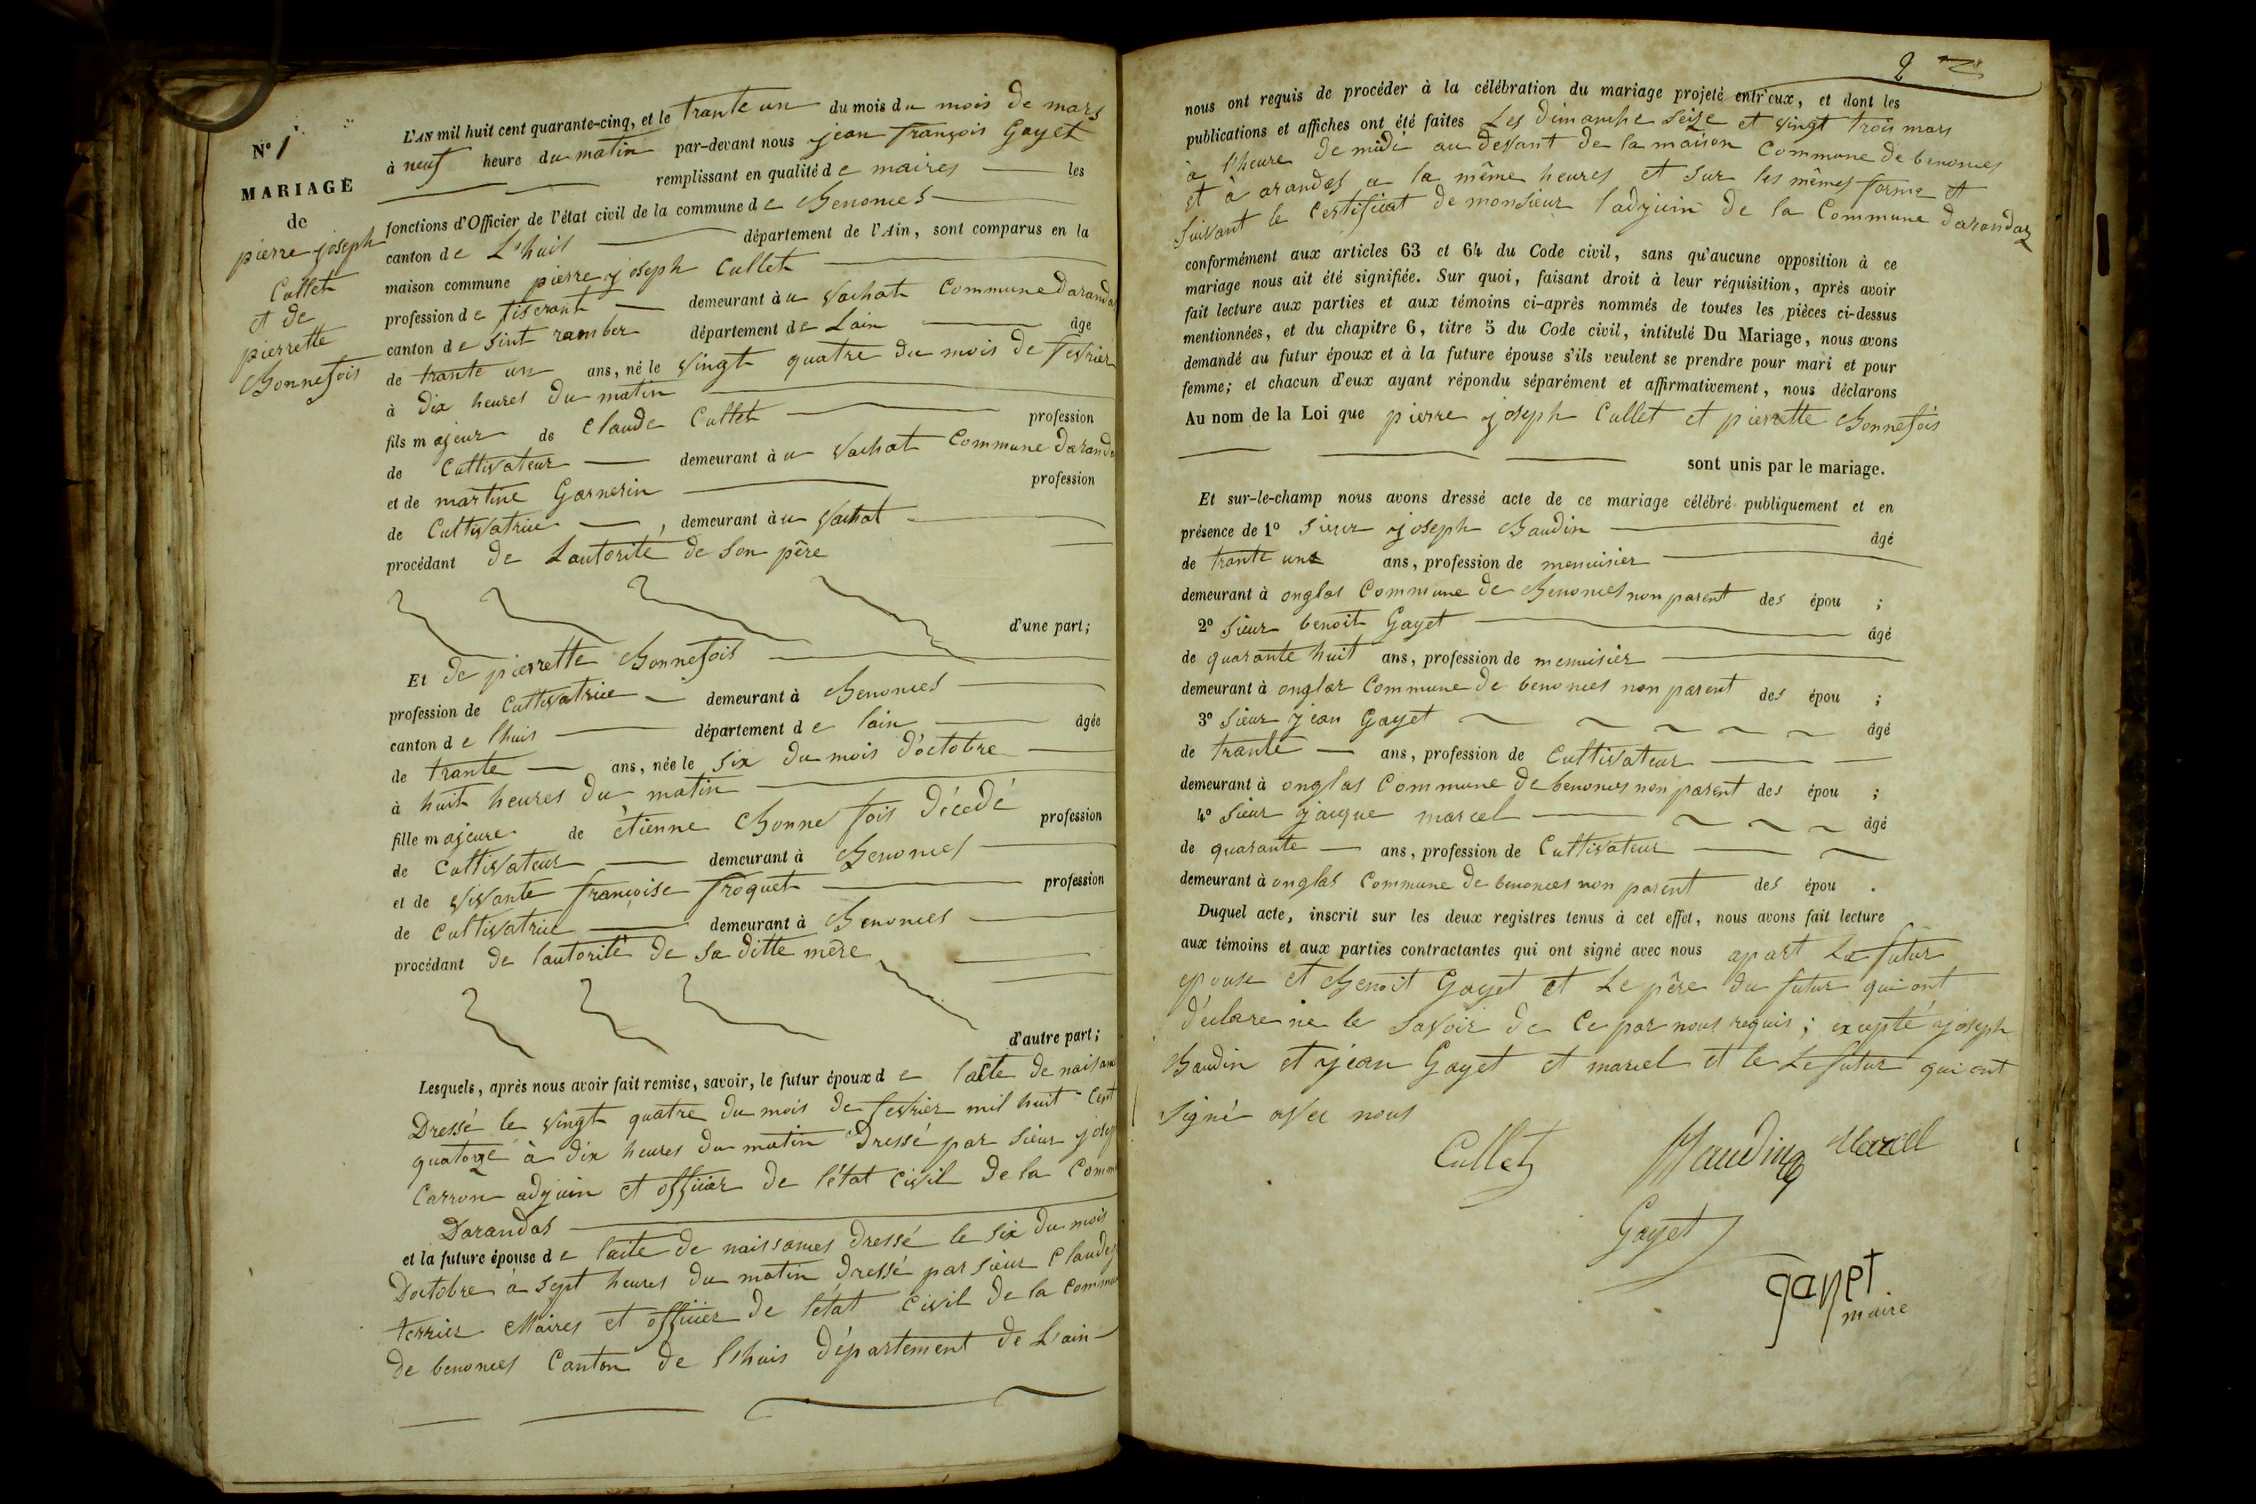 N° 1
MARIAGE
de
pierre joseph
Cullet
et de
pierrette
Bonnefois
L'AN mil huit cent quarante-cinq, et le trante un du mois du mois de mars
à neuf heure du matin par-devant nous jean françois Gayet
remplissant en qualité de maires les
fonctions d'Officier de l'état civil de la commune de Benonces
canton de L'huis département de l'Ain, sont comparus en la
maison commune pierre joseph Cullet
profession de tiserant demeurant à u Vachat Commune Darandas
canton de sint ramber département de Lain âge
de trante un ans, né le vingt quatre du mois de fevrier
à dix heures du matin
fils majeur de Claude Cullet profession
de Cultivateur demeurant à u Vachat Commune Darandas
et de martine Garnerin profession
de Cultivatrice , demeurant à u Vachat
procédant de Lautorité de son père
d'une part;
Et de pierrette Bonnefois
profession de Cultivatrice demeurant à Benonces
canton de lhuis département de lain âgée
de trante ans, née le six du mois d'octobre
à huit heures du matin
fille majeure de étienne Bonnefois décedé profession
de Cultivateur demeurant à Benonces
et de vivante françoise froquet profession
de Cultivatrice demeurant à Benonces
procédant de lautorité de sa ditte mère
d'autre part;
Lesquels, après nous avoir fait remise, savoir, le futur époux de lacte de naisan
Dressé le vingt quatre du mois de fevrier mil huit Cent
quatorze à dix heures du matin Dressé par sieur josep
Carron adjuin et officier de létat Civil de la Comm
Darandas
et la future épouse de lacte de naissances dressé le six du mois
Doctobre à sept heures du matin dressé par sieur Claude
terrier Maires et officier de létat Civil de la Commun
de benonces Canton de lhuis département de Lain
2
nous ont requis de procéder à la célébration du mariage projeté entr'eux, et dont les
publications et affiches ont été faites Les dimanche seize et vingt trois mars
à lheure de midi au devant de la maison Commune de benonces
et à arandas a la même heures et sur les mêmes forme et
suivant le Certificat de monsieur ladjuin de la Commune darandas
conformément aux articles 63 et 64 du Code civil, sans qu'aucune opposition à ce
mariage nous ait été signifiée. Sur quoi, faisant droit à leur réquisition, après avoir
fait lecture aux parties et aux témoins ci-après nommés de toutes les pièces ci-dessus
mentionnées, et du chapitre 6, titre 5 du Code civil, intitulé Du Mariage, nous avons
demandé au futur époux et à la future épouse s'ils veulent se prendre pour mari et pour
femme; et chacun d'eux ayant répondu séparément et affirmativement, nous déclarons
Au nom de la Loi que pierre joseph Cullet et pierrette Bonnefois
sont unis par le mariage.
Et sur-le-champ nous avons dressé acte de ce mariage célébré publiquement et en
présence de 1° sieur joseph Baudin âgé
de trante une ans, profession de menuisier
demeurant à onglas Commune de Benonces non parent des épou ;
2° sieur benoit Gayet âgé
de quarante huit ans, profession de menuisier
demeurant à onglas Commune de benonces non parent des épou ;
3° sieur jean Gayet âgé
de trante ans, profession de Cultivateur
demeurant à onglas Commune de benonces non parent des épou ;
4° sieur jacque marcel âgé
de quarante ans, profession de Cultivateur
demeurant à onglas Commune de benonces non parent des épou .
Duquel acte, inscrit sur les deux registres tenus à cet effet, nous avons fait lecture
aux témoins et aux parties contractantes qui ont signé avec nous apart La futur
epouse et Benoit Gayet et Le père du futur qui ont
déclare ne le savoir de Ce par nous requis; excepté joseph
Baudin et jean Gayet et marcel et le Le futur qui ont
signé avec nous
Cullet
Baudin
Marcel
Gayet
gayet
maire